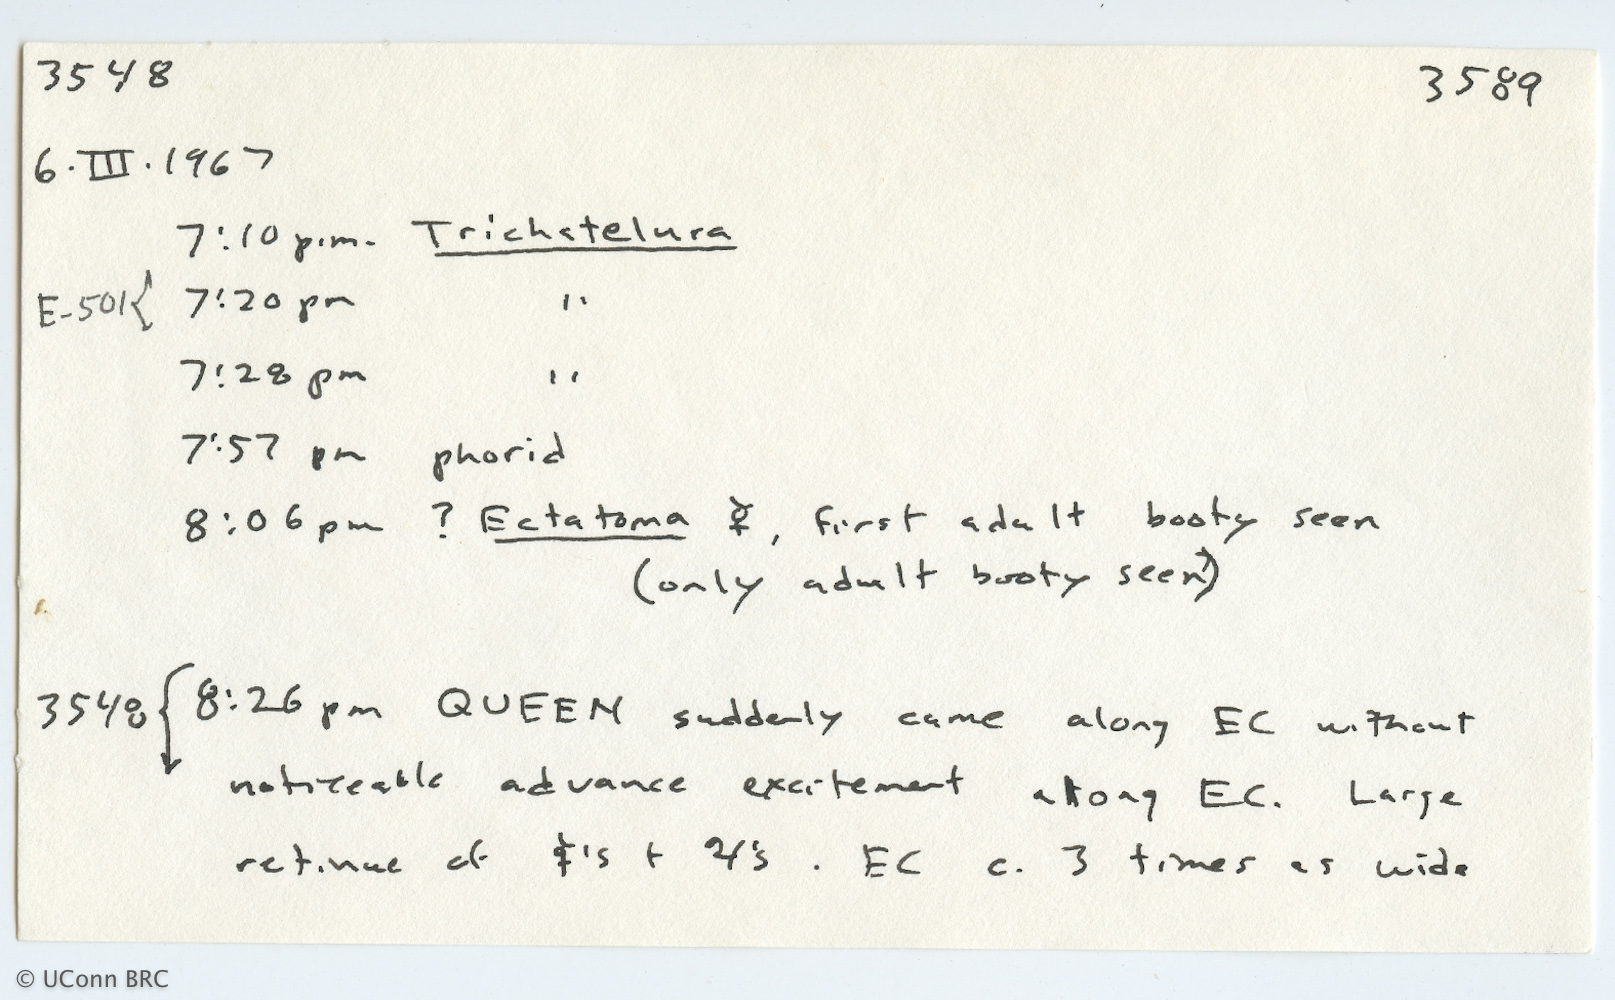 3548 3589
6.III.1967
7:10 p.m. Trichatelura
E-501{ 7:20 pm "
7:28 pm "
7:57 pm phorid
8:06 pm ? Ectatoma ☿, first adult booty seen
(only adult booty seen)
3548 { 8:26 pm QUEEN suddenly came along EC without
noticeable advance excitement along EC. Large
retinue of ☿'s + ♃'s. EC c. 3 times as wide
© UConn BRC